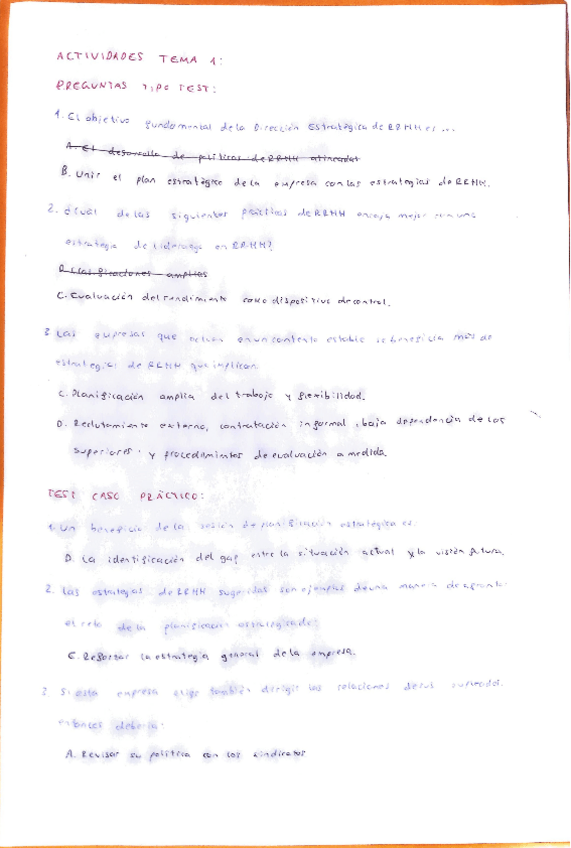 ACTIVIDADES TEMA 1:
PREGUNTAS TIPO TEST:
1. El objetivo fundamental de la Dirección Estratégica de RRHH es ...
A. El desarrollo de políticas de RRHH alineadas
B. Unir el plan estratégico de la empresa con las estrategias de RRHH.
2. ¿Cual de las siguientes prácticas de RRHH encaja mejor con una
estrategia de liderazgo en RRHH?
clasificaciones amplias
C. Evaluación del rendimiento como dispositivo de control.
3 Las empresas que actúan en un contexto estable se beneficia más de
estrategias de RRHH que implican
C. Planificación amplia del trabajo y flexibilidad.
D. Reclutamiento externo, contratación informal, baja dependencia de los
superiores y procedimientos de evaluación a medida.
TEST CASO PRÁCTICO:
1. Un beneficio de la sesión de planificación estratégica es:
D. La identificación del gap entre la situación actual y la visión futura.
2. Las estrategias de RRHH sugeridas son ejemplos de una manera de afrontar
el reto de la planificación estratégica de:
C. Reforzar la estrategia general de la empresa.
Si esta empresa elige también dirigir las relaciones de sus
entonces debería:
A. Revisar su política con los sindicatos